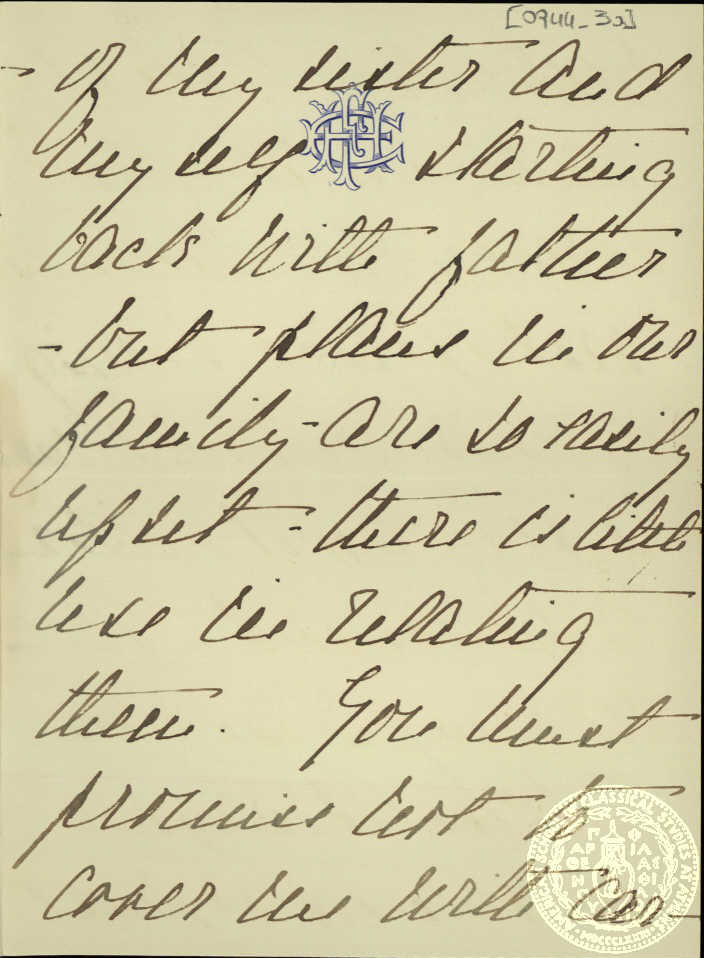 [0944_3a]
- of my sister and
myself starting
back with father
- but plans in our
family - are so easily
upset - there is little
use in relating
them. You must
promise not to
cover me with Car-
CLASSICAL STUDIES AT
MDCCCLXXXI